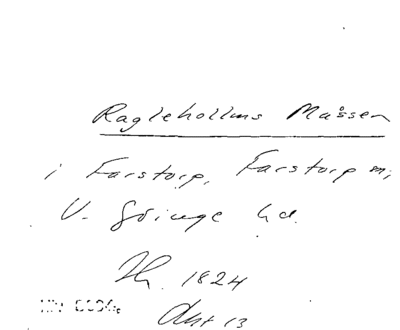 Ragleholms Måssen
i Farstorp, Farstorp m;
V. Göinge hd.
1824